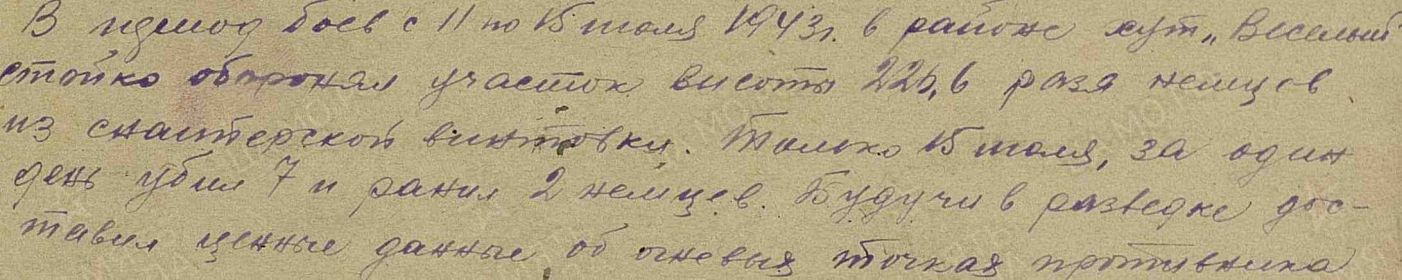 В период боев с 11 по 15 июля 1943 г. в районе хут. „Веселый"
стойко оборонял участок высоты 226,6 разя немцев
из снайперской винтовки. Только 15 июля, за один
день убил 7 и ранил 2 немцев. Будучи в разведке дос-
тавил ценные данные об огневых точках противника